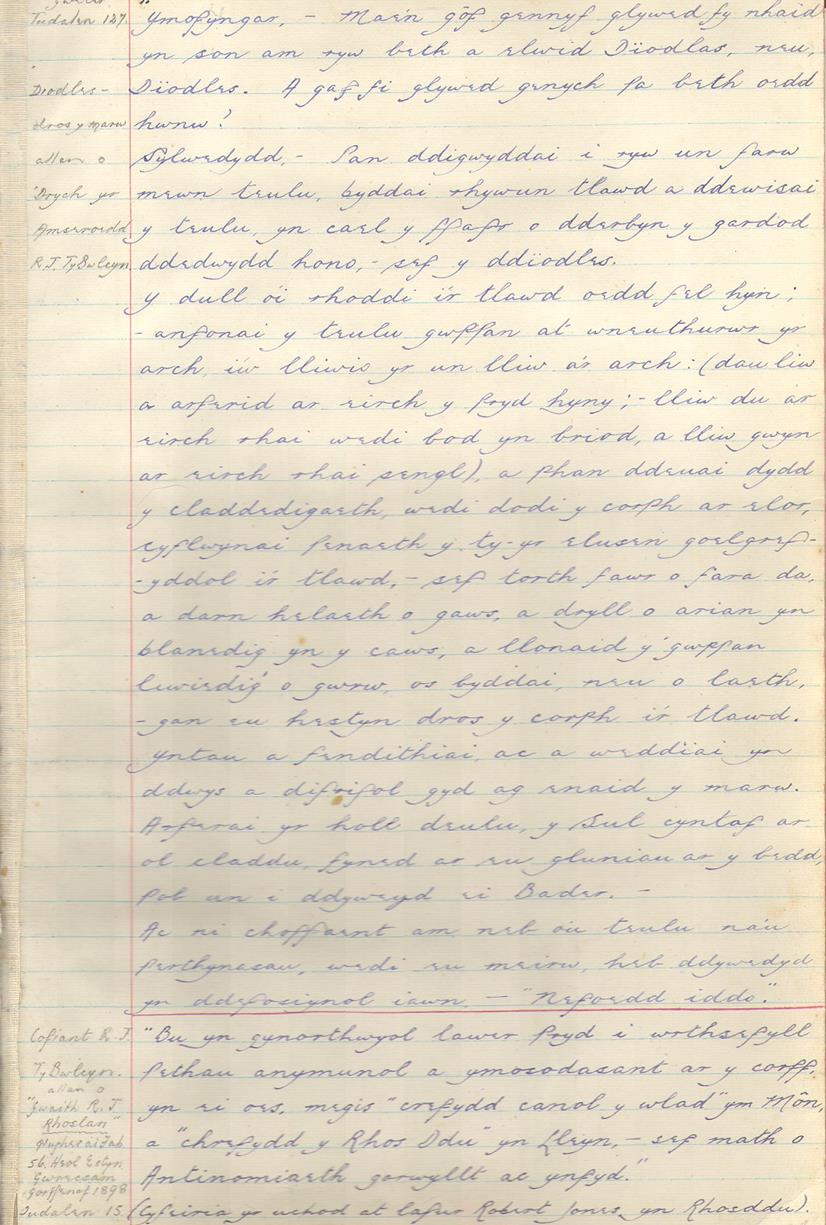 Tudalen 127. Ymofyngar, - Mae'n gôf gennyf glywed fy nhaid
yn son am ryw beth a elwid Dïodlas, neu,
Diodles - Dïodles. A gaf fi glywed genych pa beth oedd
dros y marw hwnw?
allan o Sylwedydd, - Pan ddigwyddai i ryw un farw
'Drych yr mewn teulu, byddai rhywun tlawd a ddewisai
Amseroedd y teulu, yn cael y ffafr o dderbyn y gardod
R.J. TyBwlcyn ddedwydd hono, - sef y ddïodles.
Y dull o'i rhoddi i'r tlawd oedd fel hyn;
- anfonai y teulu gwppan at wneuthurwr yr
arch, i'w lliwio yr un lliw a'r arch: (dau liw
a arferid ar eirch y pryd hyny; - lliw du ar
eirch rhai wedi bod yn briod, a lliw gwyn
ar eirch rhai sengl), a phan ddeuai dydd
y claddedigaeth, wedi dodi y corph ar elor,
cyflwynai penaeth y ty - yr elusen goelgref-
-yddol i'r tlawd, - sef torth fawr o fara da,
a darn helaeth o gaws, a dryll o arian yn
blanedig yn y caws, a llonaid y gwppan
luwiedig o gwrw, os byddai, neu o laeth,
- gan eu hestyn dros y corph i'r tlawd.
Yntau a fendithiai, ac a weddïai yn
ddwys a difrifol gyd ag enaid y marw.
Arferai yr holl deulu, y Sul cyntaf ar
ol claddu, fyned ar eu gluniau ar y bedd,
pob un i ddyweyd ei Bader. -
Ac ni choffaent am neb o'u teulu na'u
perthynasau, wedi eu meirw, heb ddywedyd
yn ddefosiynol iawn, - "Nefoedd iddo."
Cofiant R.J. "Bu yn gynorthwyol lawer pryd i wrthsefyll
Ty Bwlcyn. pethau anymunol a ymosodasant ar y corff,
allan o
"Gwaith R.J. yn ei oes, megis "crefydd canol y wlad" ym Môn,
Rhoslan" a "chrefydd y Rhos Ddu" yn Lleyn, - sef math o
56, Heol Estyn
Gwrecsam Antinomiaeth gorwyllt ac ynfyd."
Gorffenaf 1898
Tudalen 15. (Cyfeiria yr uchod at lafur Robert Jones, yn Rhosddu).